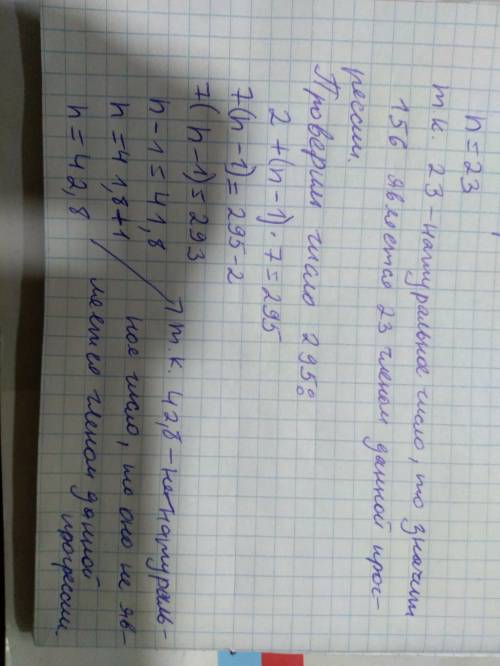 n = 23
т.к. 23 - натуральное число, то значит
156 является 23 членом данной прог-
рессии.
Проверим число 295:
2 + (n - 1) · 7 = 295
7(n - 1) = 295 - 2
7(n - 1) = 293
n - 1 = 41,8
n = 41,8 + 1
n = 42,8
т.к. 42,8 - не натураль-
ное число, то оно не яв-
ляется членом данной
прогрессии.